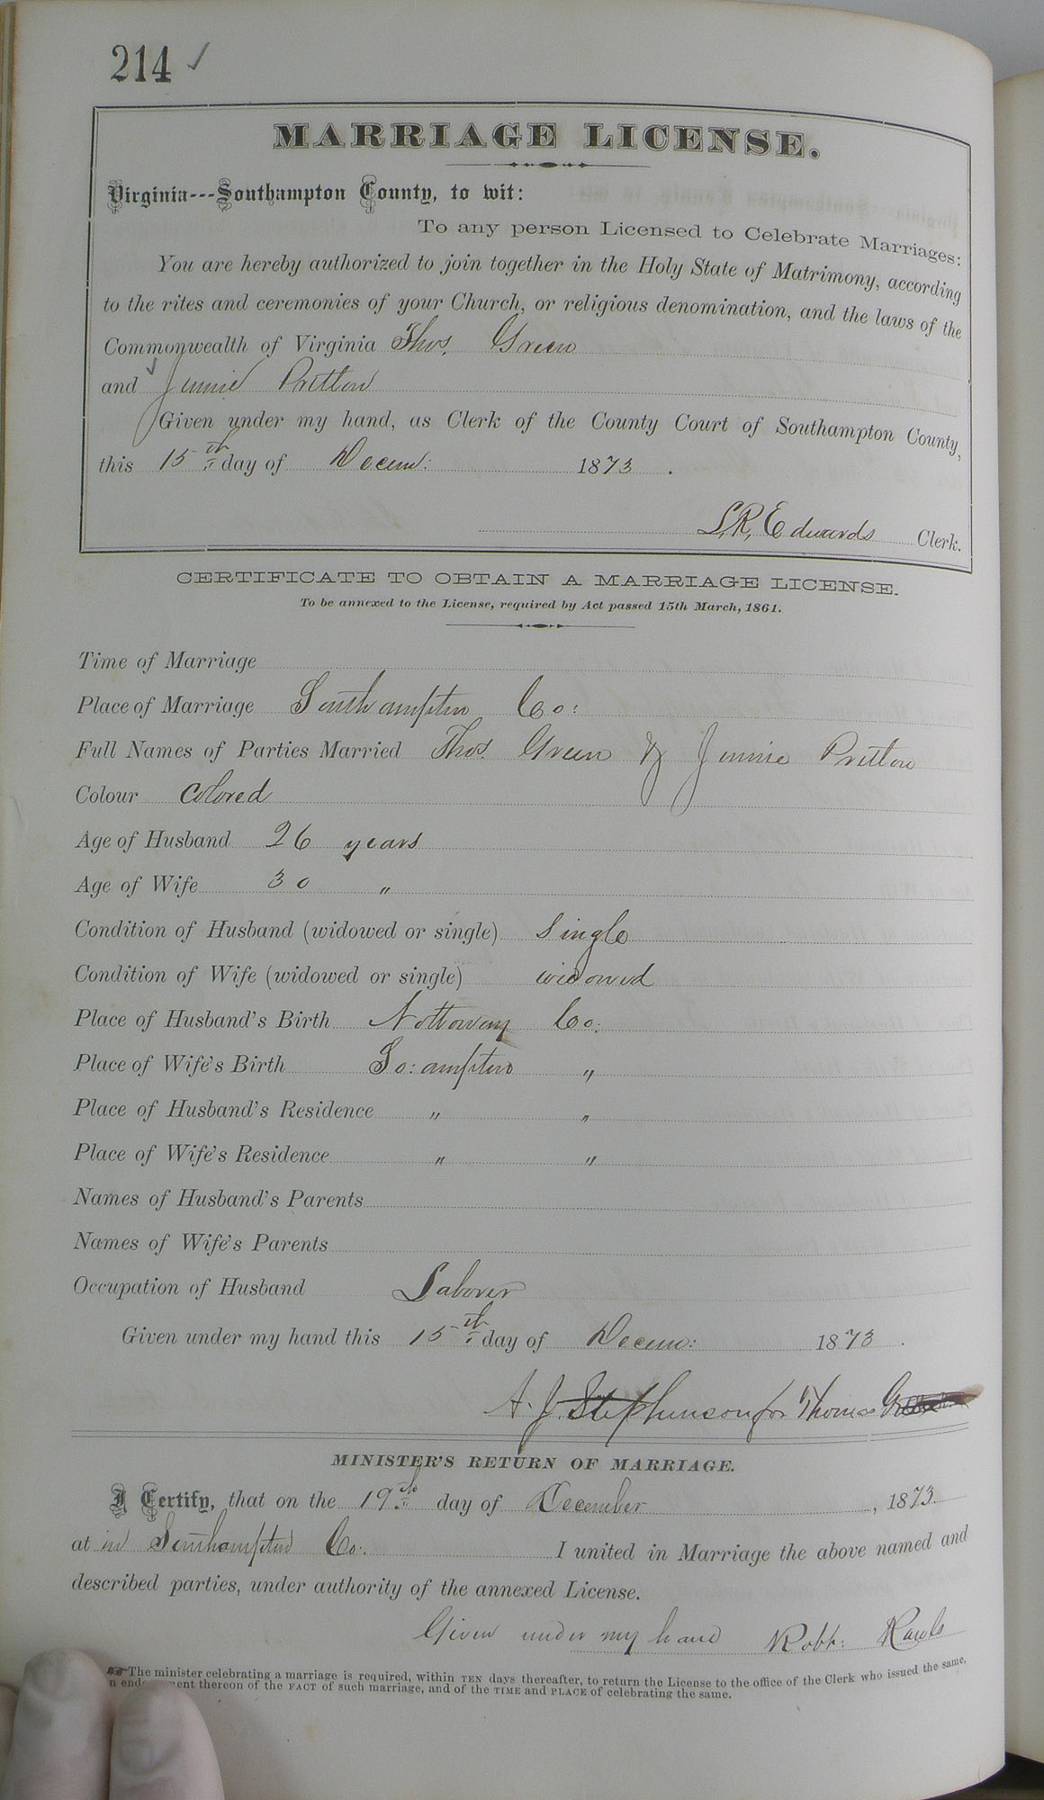 214 ✓
MARRIAGE LICENSE.
Virginia---Southampton County, to wit:
To any person Licensed to Celebrate Marriages:
You are hereby authorized to join together in the Holy State of Matrimony, according
to the rites and ceremonies of your Church, or religious denomination, and the laws of the
Commonwealth of Virginia Thos. Green
and Jennie Pretlow
Given under my hand, as Clerk of the County Court of Southampton County,
this 15th day of Decem: 1873.
L. R. Edwards Clerk.
CERTIFICATE TO OBTAIN A MARRIAGE LICENSE.
To be annexed to the License, required by Act passed 15th March, 1861.
Time of Marriage
Place of Marriage Southampton Co:
Full Names of Parties Married Thos. Green & Jennie Pretlow
Colour Colored
Age of Husband 26 years
Age of Wife 30 "
Condition of Husband (widowed or single) Single
Condition of Wife (widowed or single) widowed
Place of Husband's Birth Nottoway Co:
Place of Wife's Birth So: ampton "
Place of Husband's Residence " "
Place of Wife's Residence " "
Names of Husband's Parents
Names of Wife's Parents
Occupation of Husband Laborer
Given under my hand this 15th day of Decem: 1873.
A. J. Stephenson for Thomas
MINISTER'S RETURN OF MARRIAGE.
I Certify, that on the 19th day of December, 1873
at in Southampton Co. I united in Marriage the above named and
described parties, under authority of the annexed License.
Given under my hand Robt: Rawls
The minister celebrating a marriage is required, within TEN days thereafter, to return the License to the office of the Clerk who issued the same,
thereon of the FACT of such marriage, and of the TIME and PLACE of celebrating the same.